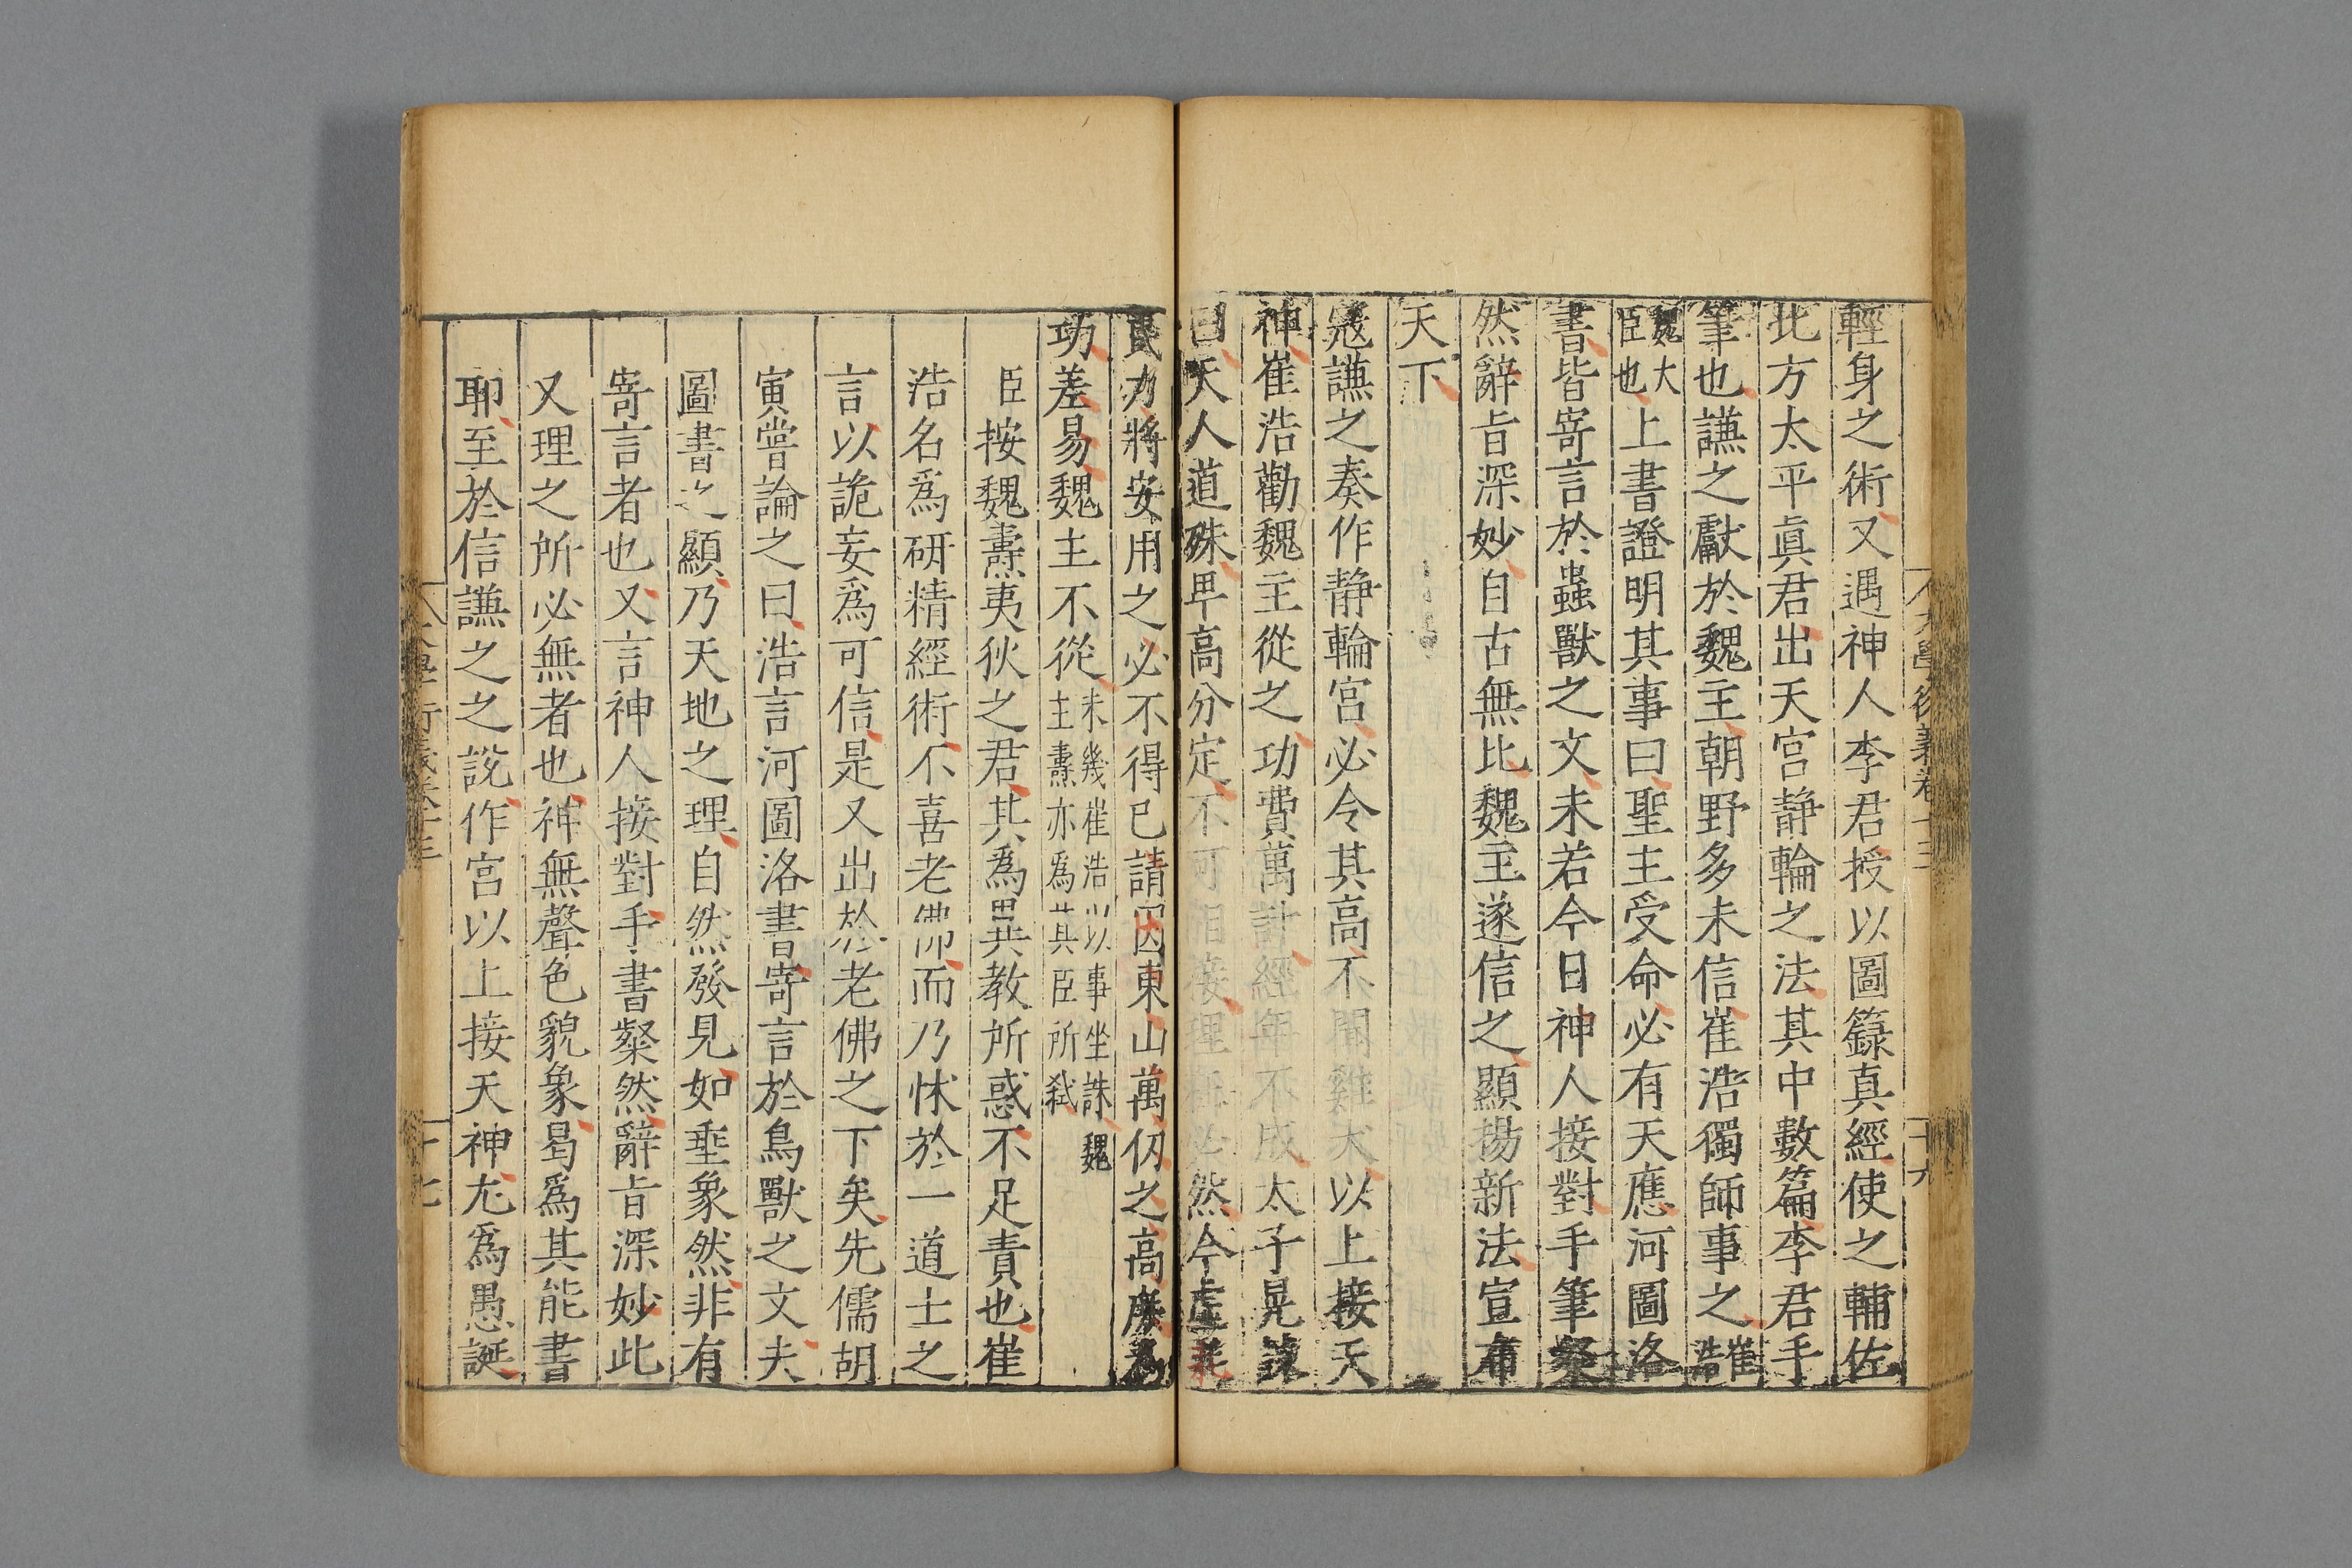 輕身之術又遇神人李君授以圖籙真經使之輔佐
北方太平眞君出天宮静輪之法其中數篇李君手
筆也謙之獻於魏主朝野多未信崔浩獨師事之崔浩
魏大臣也上書證明其事曰聖主受命必有天應河圖洛
書皆寄言於蟲獸之文未若今日神人接對手筆粲
然辭旨深妙自古無比魏主遂信之顯揚新法宣布
天下
寇謙之奏作静輪宮必令其高不聞雞犬以上接天
神崔浩勸魏主從之功費萬計經年不成太子晃諫
曰天人道殊卑高分定不可相接理在必然今虛耗
民力將安用之必不得已請因東山萬仞之高
功差易魏主不從未幾崔浩以事坐誅魏主燾亦爲其臣所弒
臣按魏燾夷狄之君其爲異教所惑不足責也崔
浩名爲研精經術不喜老佛而乃怵於一道士之
言以詭妄爲可信是又出於老佛之下矣先儒胡
寅嘗論之曰浩言河圖洛書寄言於鳥獸之文夫
圖書之顯乃天地之理自然發見如垂象然非有
寄言者也又言神人接對手書粲然辭旨深妙此
又理之所必無者也神無聲色貌象曷爲其能書
耶至於信謙之之說作宮以上接天神尤爲愚誕